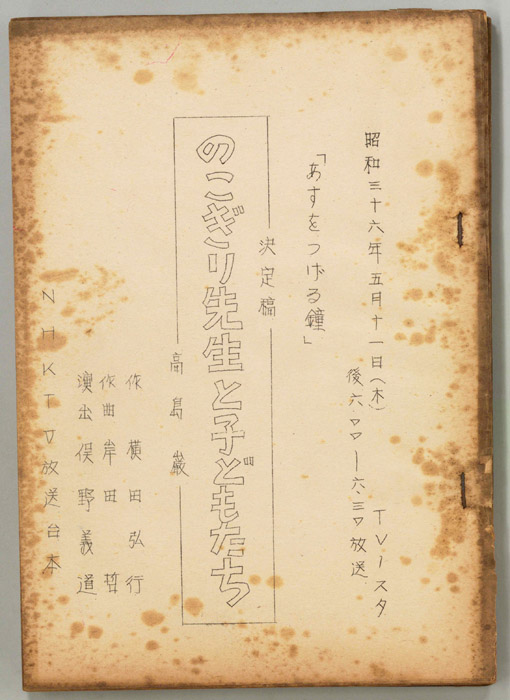 昭和三十六年五月十一日(木)
TV－スタ
後六.〇〇－六.三〇放送
「あすをつげる鐘」
決定稿
のこぎり先生と子どもたち
高島巌
作 横田弘行
作曲 岸田哲
演出 俣野義道
NHKTV放送台本